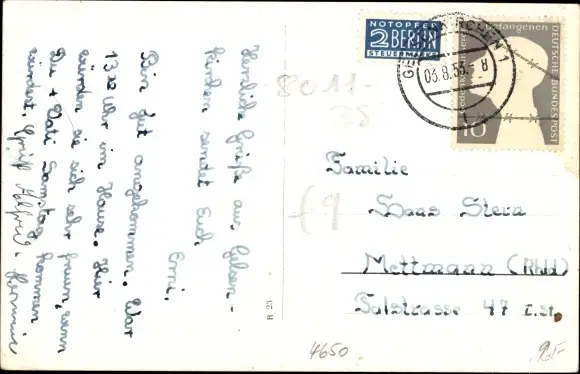 Herzliche Grüße aus Gelsen-
kirchen sendet Euch
Erni.
Bin gut angekommen. War
13 12 Uhr im Hause. Hier
würden sie sich sehr freuen, wenn
Du + Vati Samstag kommen
würdest. Gruß
Hermine
NOTOPFER
2 BERLIN
STEUERMARKE
DEUTSCHE BUNDESPOST
10
03.8.53.-8
8011-
25
Familie
Hans Stern
Mettmann (Rhld)
Talstrasse 47 I.St.
£9
R 23
4650